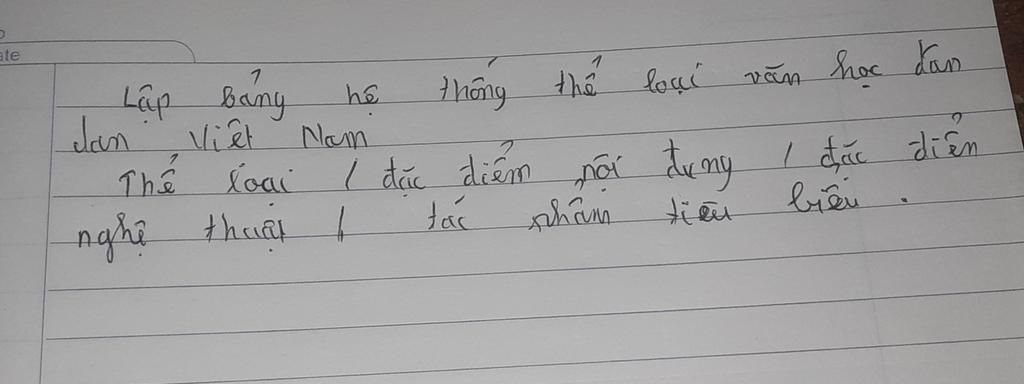 ate
Lập Bảng hệ thống thể loại văn học dan
dan Việt Nam
Thể loại / đặc điểm nội dung / đặc điển
nghệ thuật / tác phẩm tiêu biểu .